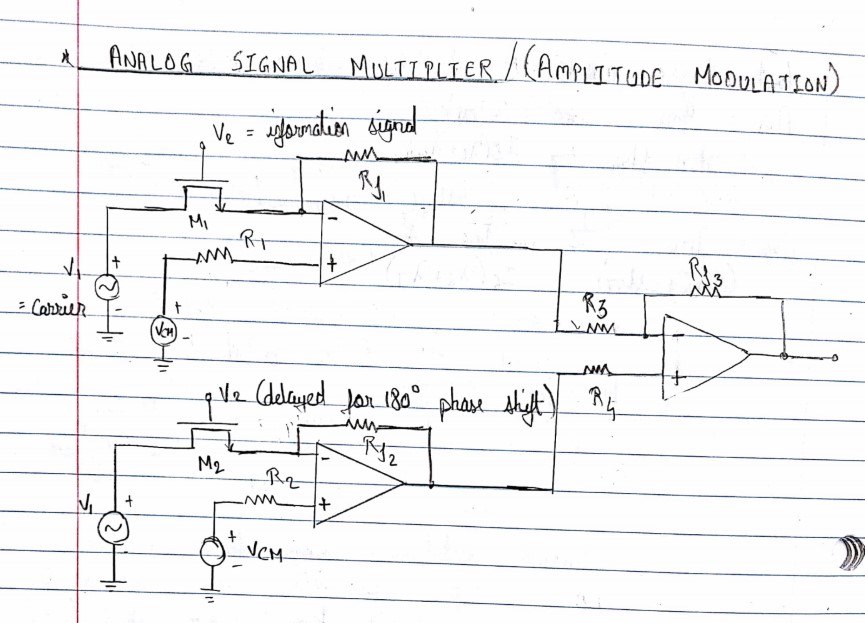 * ANALOG SIGNAL MULTIPLIER / (AMPLITUDE MODULATION)
V2 = information signal
Rf1
M1
R1
-
+
V1
+
-
= Carrier
VCM
+
-
Rf3
R3
-
+
R4
V2 (delayed for 180° phase shift)
Rf2
M2
R2
-
+
V1
+
-
+
VCM
-